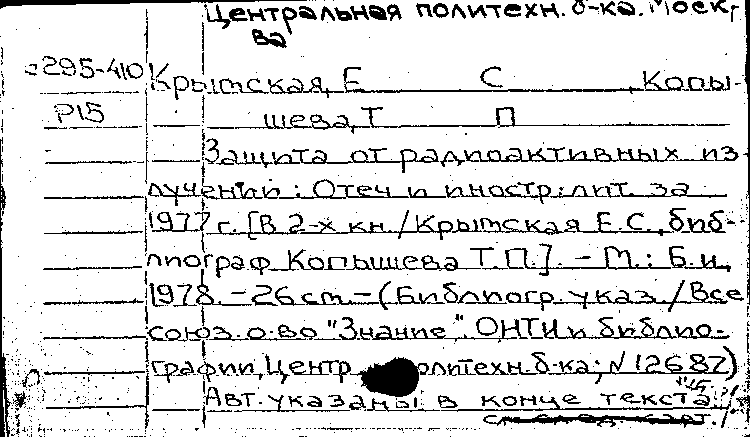 Центральная политехн. б-ка. Моск-
ва
с295-410 Крымская, Е С , Копы-
Р15 шева, Т П
Защита от радиоактивных из-
лучений : Отеч и иностр. лит. за
1977 г. [В 2-х кн. / Крымская Е.С., биб-
лиограф Копышева Т.П.]. - М. : Б.и,
1978. - 26 cm. - (Библиогр. указ. / Все
союз. о-во "Знание". ОНТИ и библио-
графии, Центр политехн. б-ка; N 12687)
Авт. указаны в конце текста